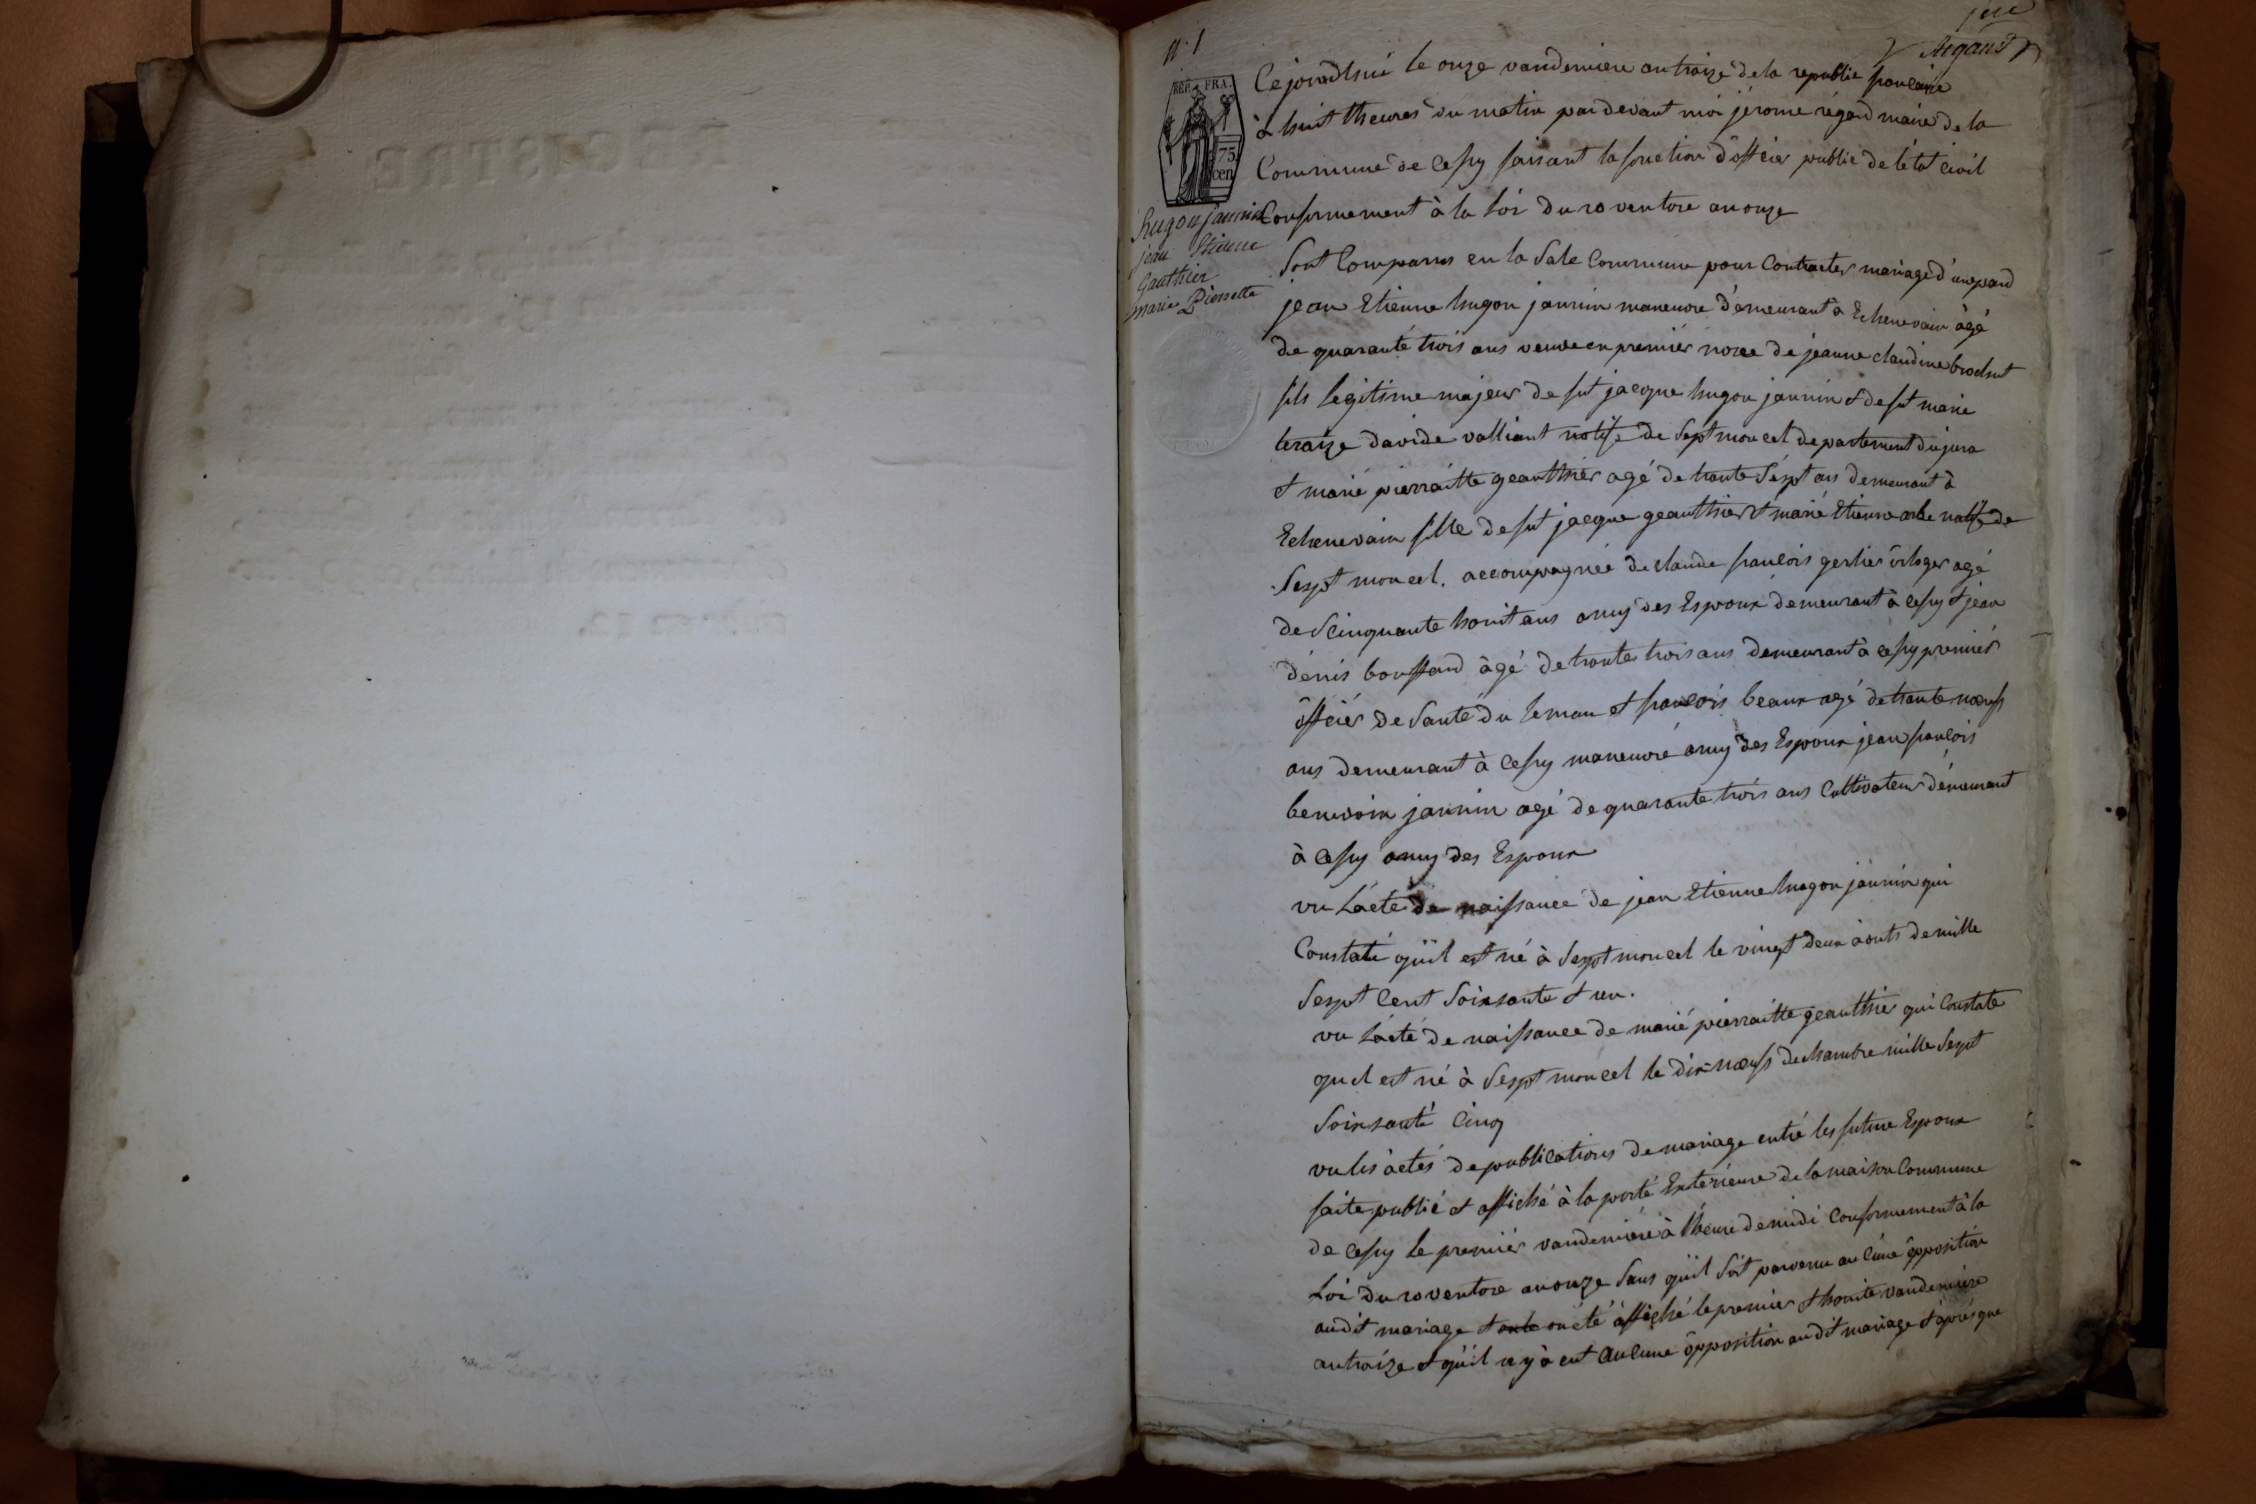 N.° 1
REP. FRA.
75
cen
hugon jannin
jean Etienne
Gauthier
marie Pierrette
Ce jourdhuÿ le onze vandemiere an traize de la republic francaise
à huit Theures du matin par devant moi jérome régard maire de la
Commune de Cessy faisant la fonction d'officier public de l'état civil
Conformement à la Loi du 20 ventose an onze
Sont Comparus en la Sale Commune pour Contracter mariage d'une pard
jean Etienne hugon jannin maneuvre demeurant à Echenevaix âgé
de quaranté trois ans veuve en premier noce de jeanne claudine
fils legitime majeur de fut jacque hugon jannin & de fut marie
teraize davide valliant notife de Sept moncel departement du jura
& marié pierraitte geauthier agé de trante Sept ans demeurant à
Echenevaix fille de fut jacque geauthier & marié Etienne natife de
Sept moncel. accompagnée de claude francois gerlier orloger agé
de Scinquante houit ans amy des Espoux demeurant à Cessy & jean
dénis bouffard âgé de trantes trois ans demeurant à Cessy premier
officier de Santé du leman et francois beaux agé de trante noeufs
ans demeurant à Cessy maneuvré amy des Espoux jean francois
benvoin jannin agé de quarante trois ans Cultivateur demeurant
à Cessy amy des Espoux
vu L'acte de naissance de jean Etienne hugon jannin qui
Constaté qu'il est né à Sept moncel le vingt deux aouts de mille
Sept Cent Soixsante & un.
vu L'acté de naissance de marié pierraitte geauthier qui Constate
quel est né à Sept moncel le dix noeufs dechambre mille Sept
Soixsanté Cinq
vu les actes de publications de mariage entré les future Espoux
faite publié & affiché à la porté Exterieure de la maison Commune
de Cessy le premier vandemiere à l'heure de midi Conformement à la
Loi du 20 ventose an onze Sans qu'il Soit parvenu aucune opposition
audit mariage & été affiché le premier & houite vandemiere
an traize & qu'il n'y à eut aucune opposition audit mariage & après que